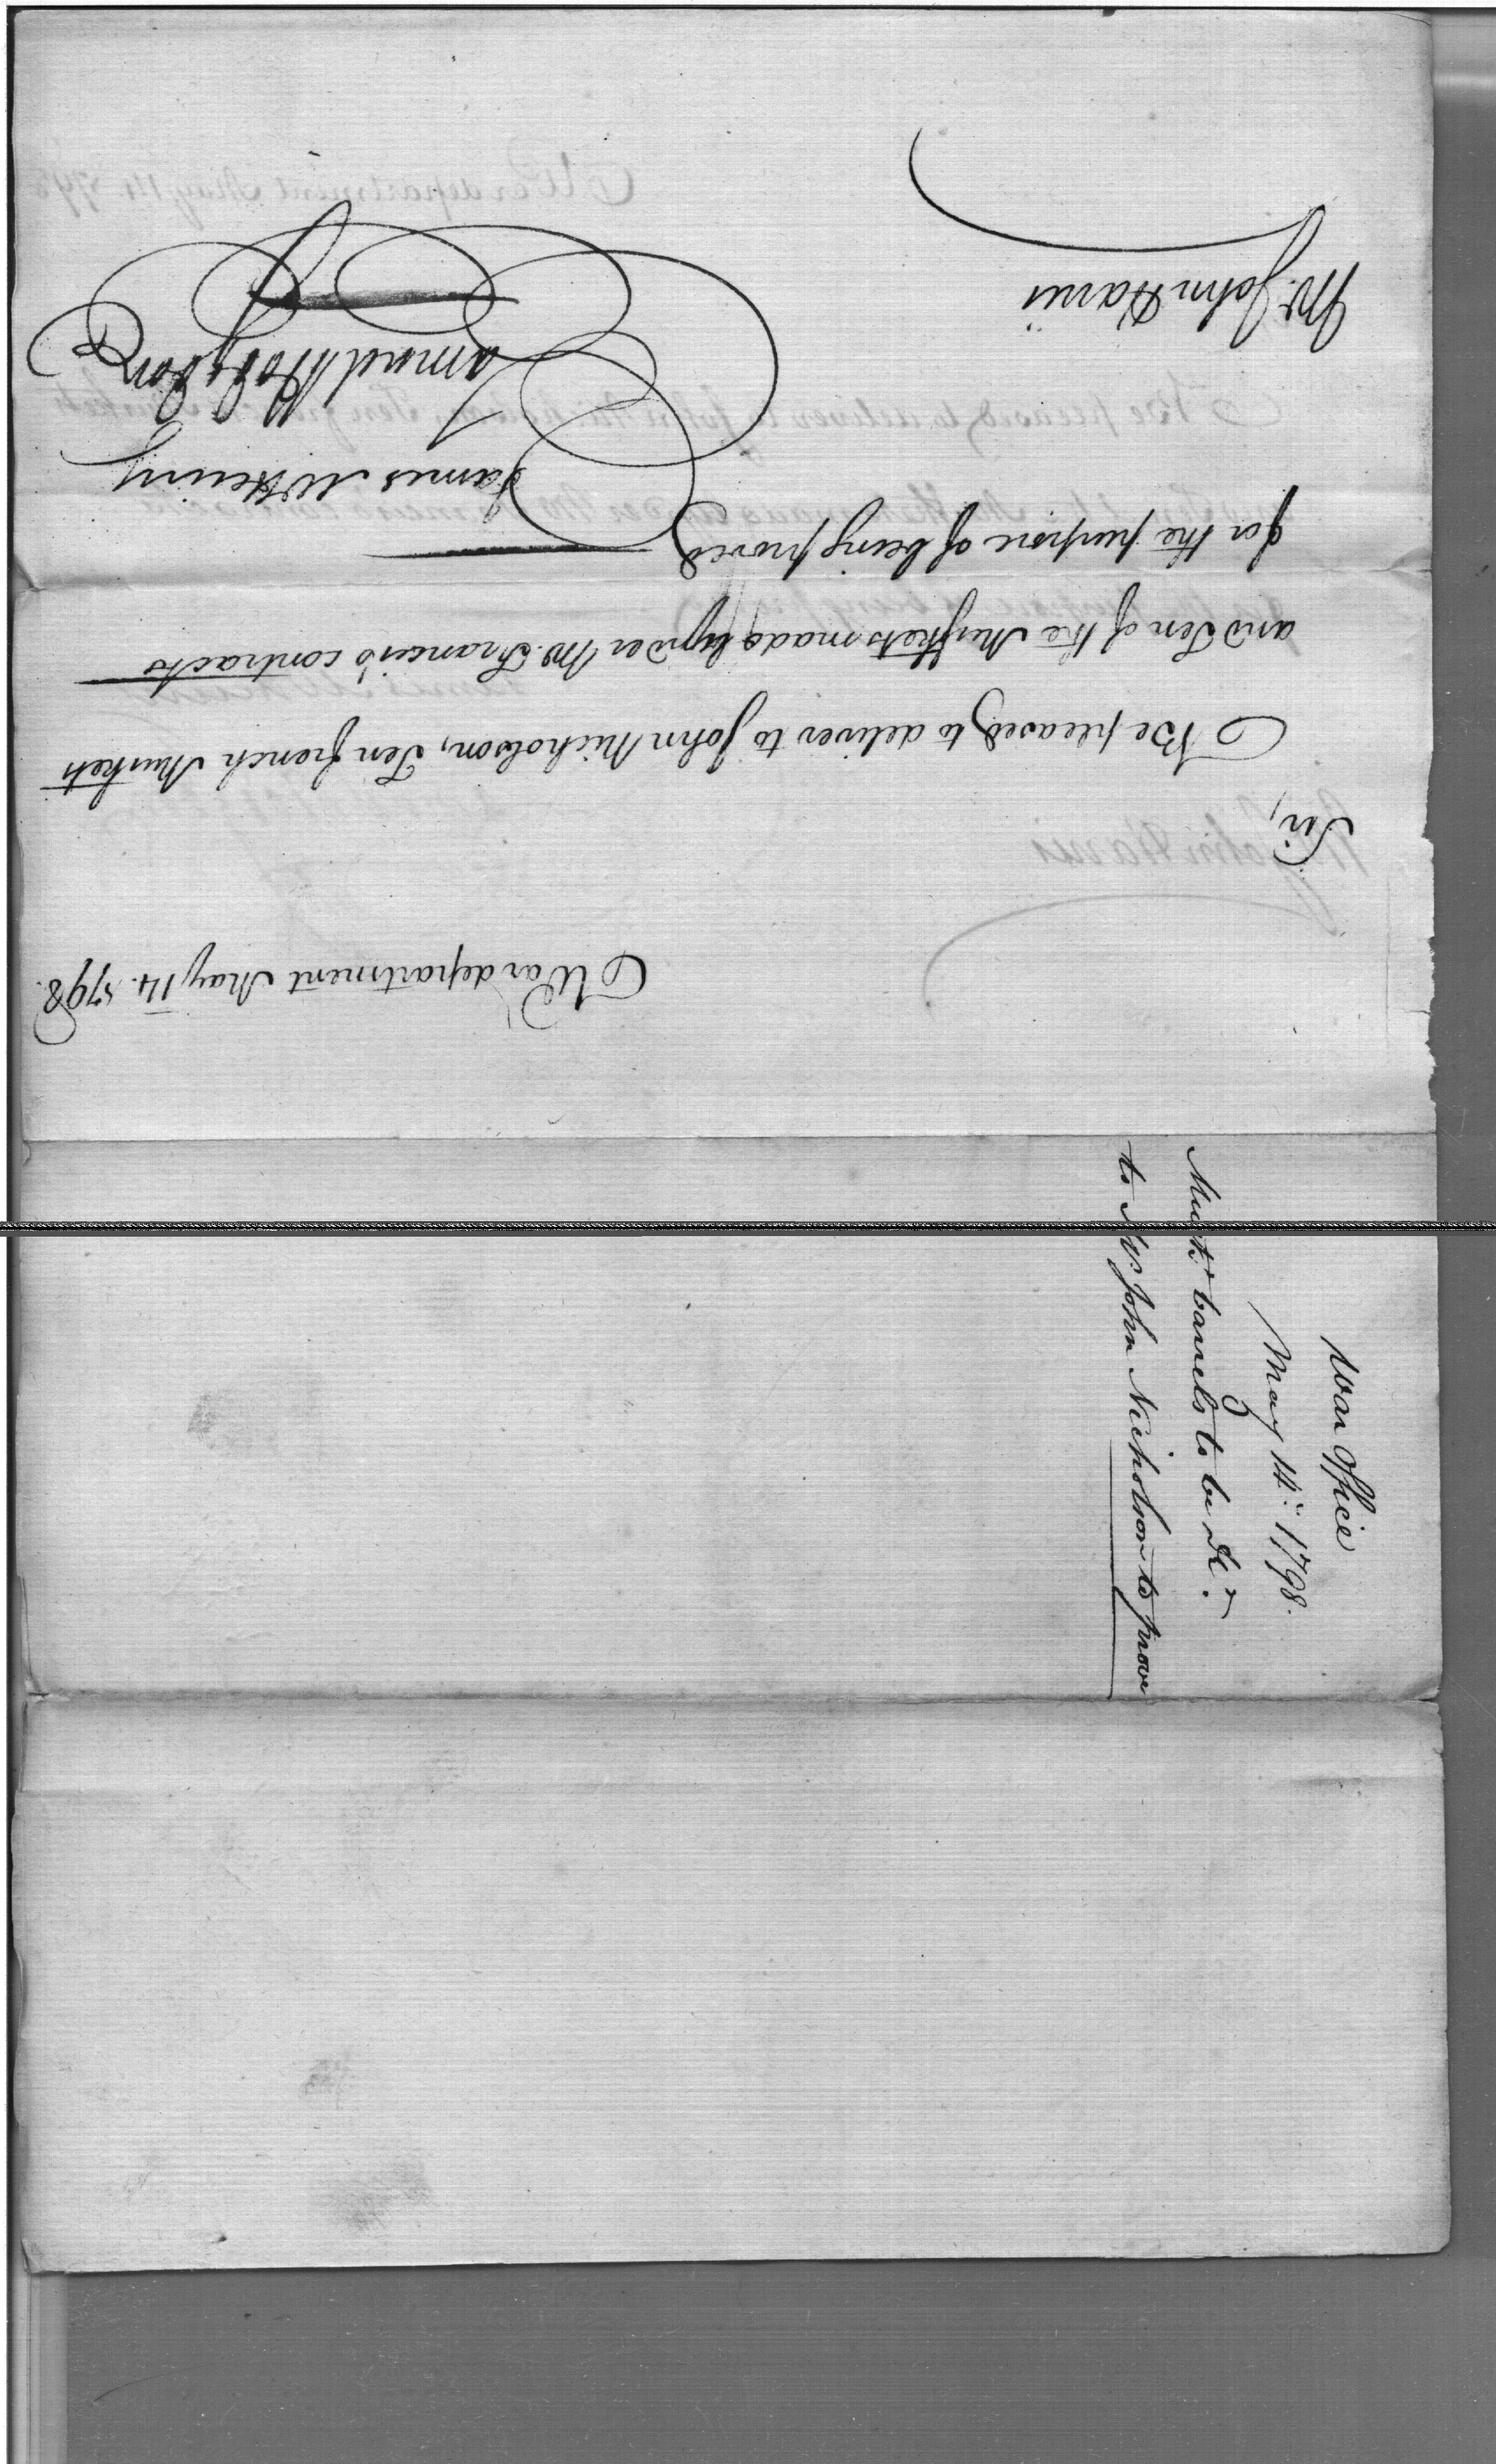 War department May 14. 1798.
Sir,
Be pleased to deliver to John Nicholson, Ten french Muskets
and Ten of the Muskets made under Mr. Francis's contracts
for the purpose of being proved
James McHenry
Samuel Hodgdon
Mr. John Harris
War Office
May 14th 1798.
Muskt. barrels to be dld.
to Mr. John Nicholson to prove